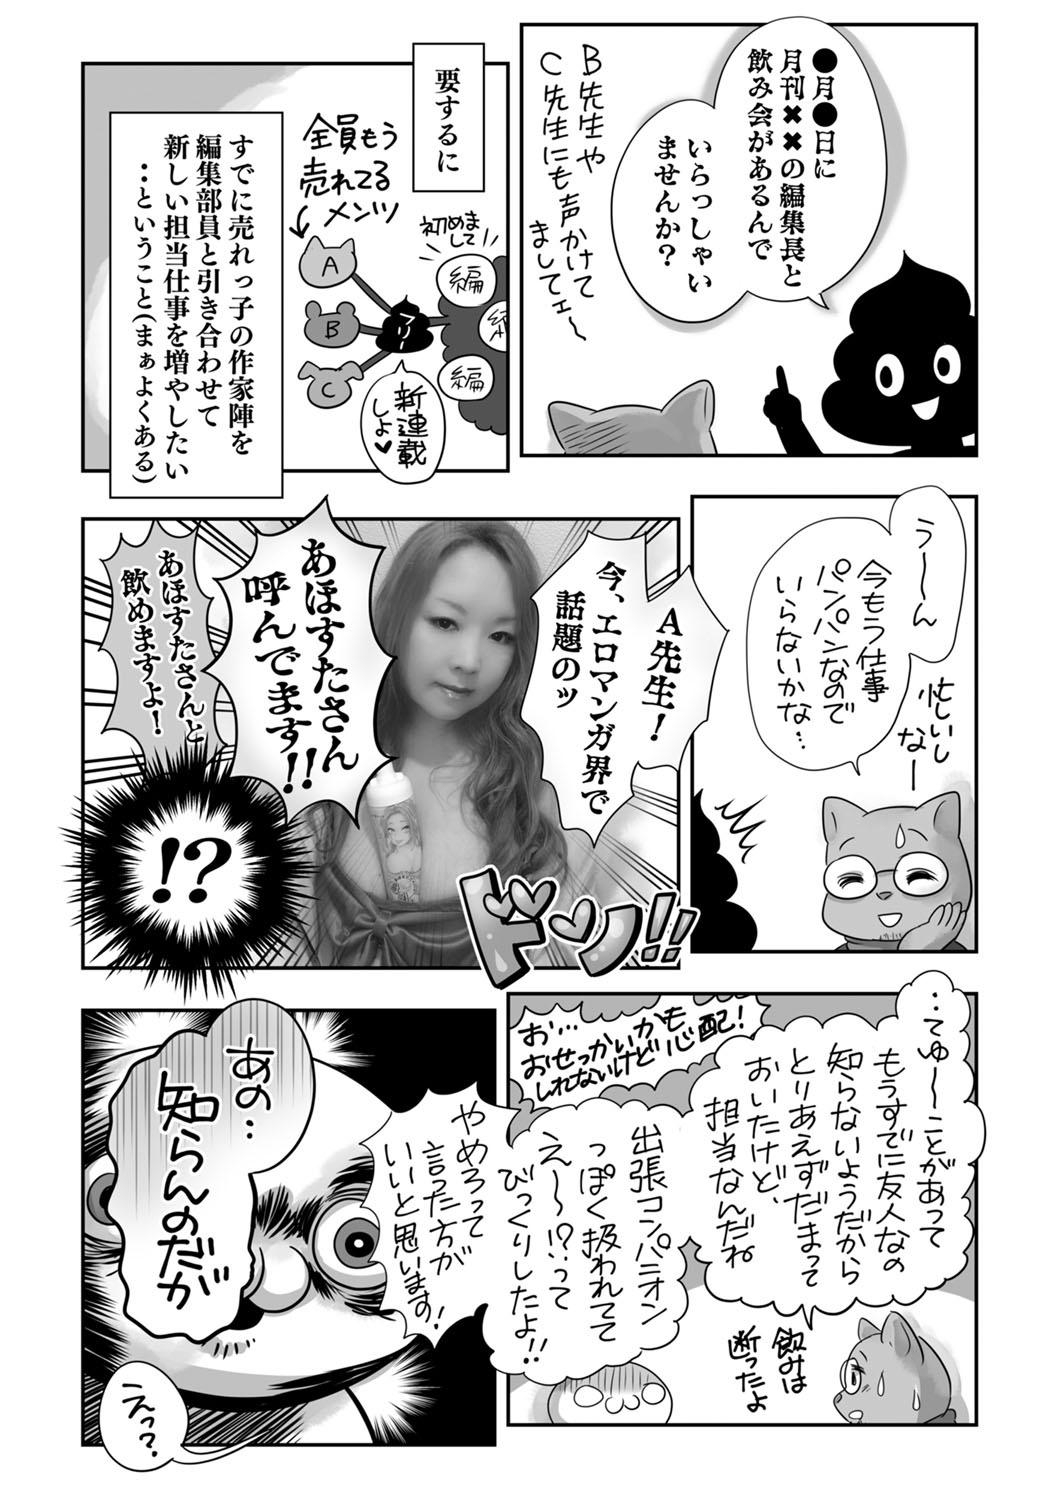 ●月●日に
月刊✖✖の編集長と
飲み会があるんで
いらっしゃい
ませんか？
B先生や
C先生にも声かけて
ましてェ〜
要するに
全員もう
売れてる
メンツ
初めまして
A
B
C
編
編
編
新連載
しよ♥
すでに売れっ子の作家陣を
編集部員と引き合わせて
新しい担当仕事を増やしたい
・・ということ(まぁよくある)
う〜〜ん
今もう仕事
パンパンなので
いらないかな・・
忙しいし
なー
A先生！
今、エロマンガ界で
話題のッ
あほすたさん
呼んでます!!
あほすたさんと
飲めますよ！
!?
ドンッ!!
・・てゆ〜ことがあって
もうすでに友人なの
知らないようだから
とりあえずだまって
おいたけど、
担当なんだね
飲みは
断ったよ
お・・・
おせっかいかも
しれないけど心配！
出張コンパニオン
っぽく扱われてて
え〜〜!?って
びっくりしたよ!!
やめろって
言った方が
いいと思います！
あの・・・
知らんのだが
えっ？